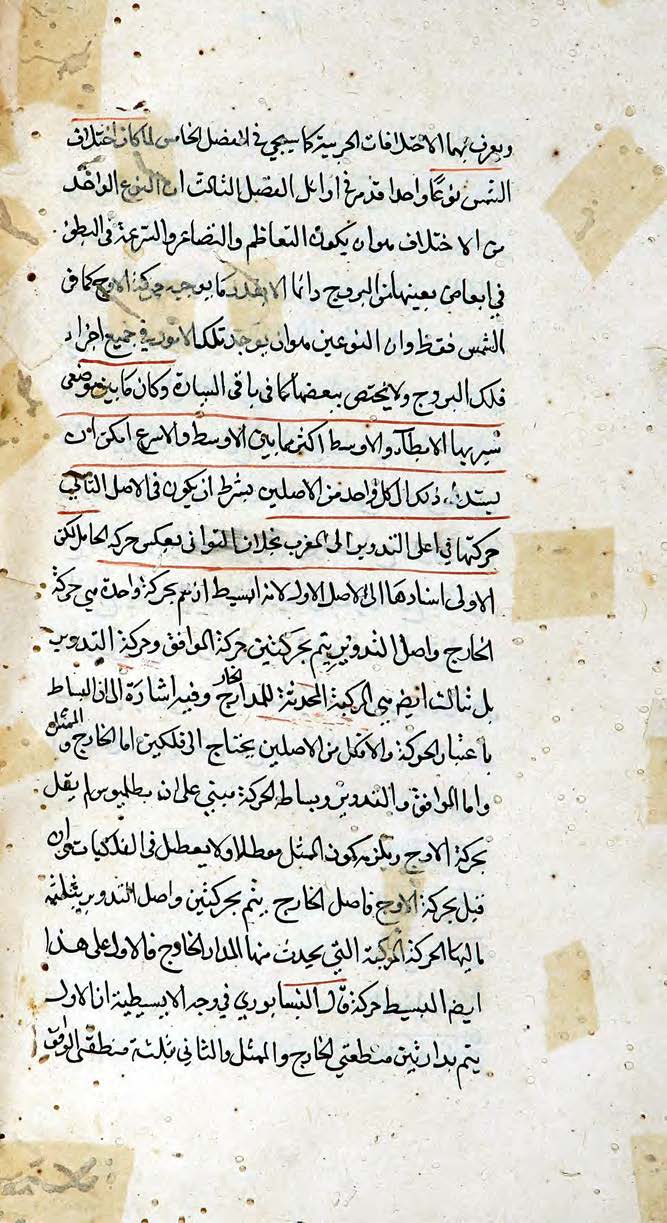 ويعرف بهما الاختلافات الجزئية كما سيجي في الفصل الخامس لما كان اختلاف
الشمس نوعا واحدا قد مر في اوايل الفصل الثالث ان النوع الواحد
من الاختلاف هو ان يكون التعاظم والتصاغر والسرعة والبطؤ
في ابعاض بعينها من البروج دائما الا بقدر ما يوجبه حركة الاوج كما في
الشمس فقط وان النوعين هو ان يوجد تلك الامور في جميع اجزاء
فلك البروج ولا يختص ببعضها كما في باقي السيارة وكان ما بين موضعي
سيريها الابطاء والاوسط اكثر مما بين الاوسط والاسرع امكن ان
يستند ذلك الى كل واحد من الاصلين بشرط ان يكون في الاصل الثاني
حركتها في اعلى التدوير الى المغرب بخلاف التوالي بعكس حركة الحامل لكن
الاولى اسنادها الى الاصل الاول لانه ابسط اذ يتم بحركة واحدة هي حركة
الخارج واصل التدوير يتم بحركتين حركة الموافق وحركة التدوير
بل ثالث ايضا هي المركبة المحدثة للمدار الخارج وفيه اشارة الى ان البساط
باعتبار الحركة والا فكل من الاصلين يحتاج الى فلكين اما الخارج والممثل
واما الموافق والتدوير وبساطة الحركة مبني على ان بطلميوس لم يقل
بحركة الاوج ويلزمه كون الممثل معطلا ولا معطل في الفلكيات وان
قيل بحركة الاوج فاصل الخارج يتم بحركتين واصل التدوير بثلثة
ثالثها الحركة المركبة التي يحدث منها المدار الخارج فالاول على هذا
ايضا ابسط حركة قال النيسابوري في وجه الابسطية ان الاول
يتم بدائرتين منطقتي الخارج والممثل والثاني بثلثة منطقتي الموافق